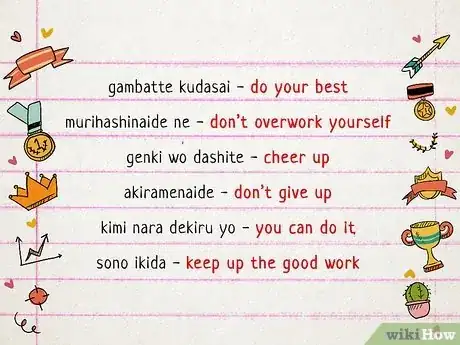 gambatte kudasai – do your best
murihashinaide ne – don't overwork yourself
genki wo dashite – cheer up
akiramenaide – don't give up
kimi nara dekiru yo – you can do it
sono ikida – keep up the good work
wikiHow